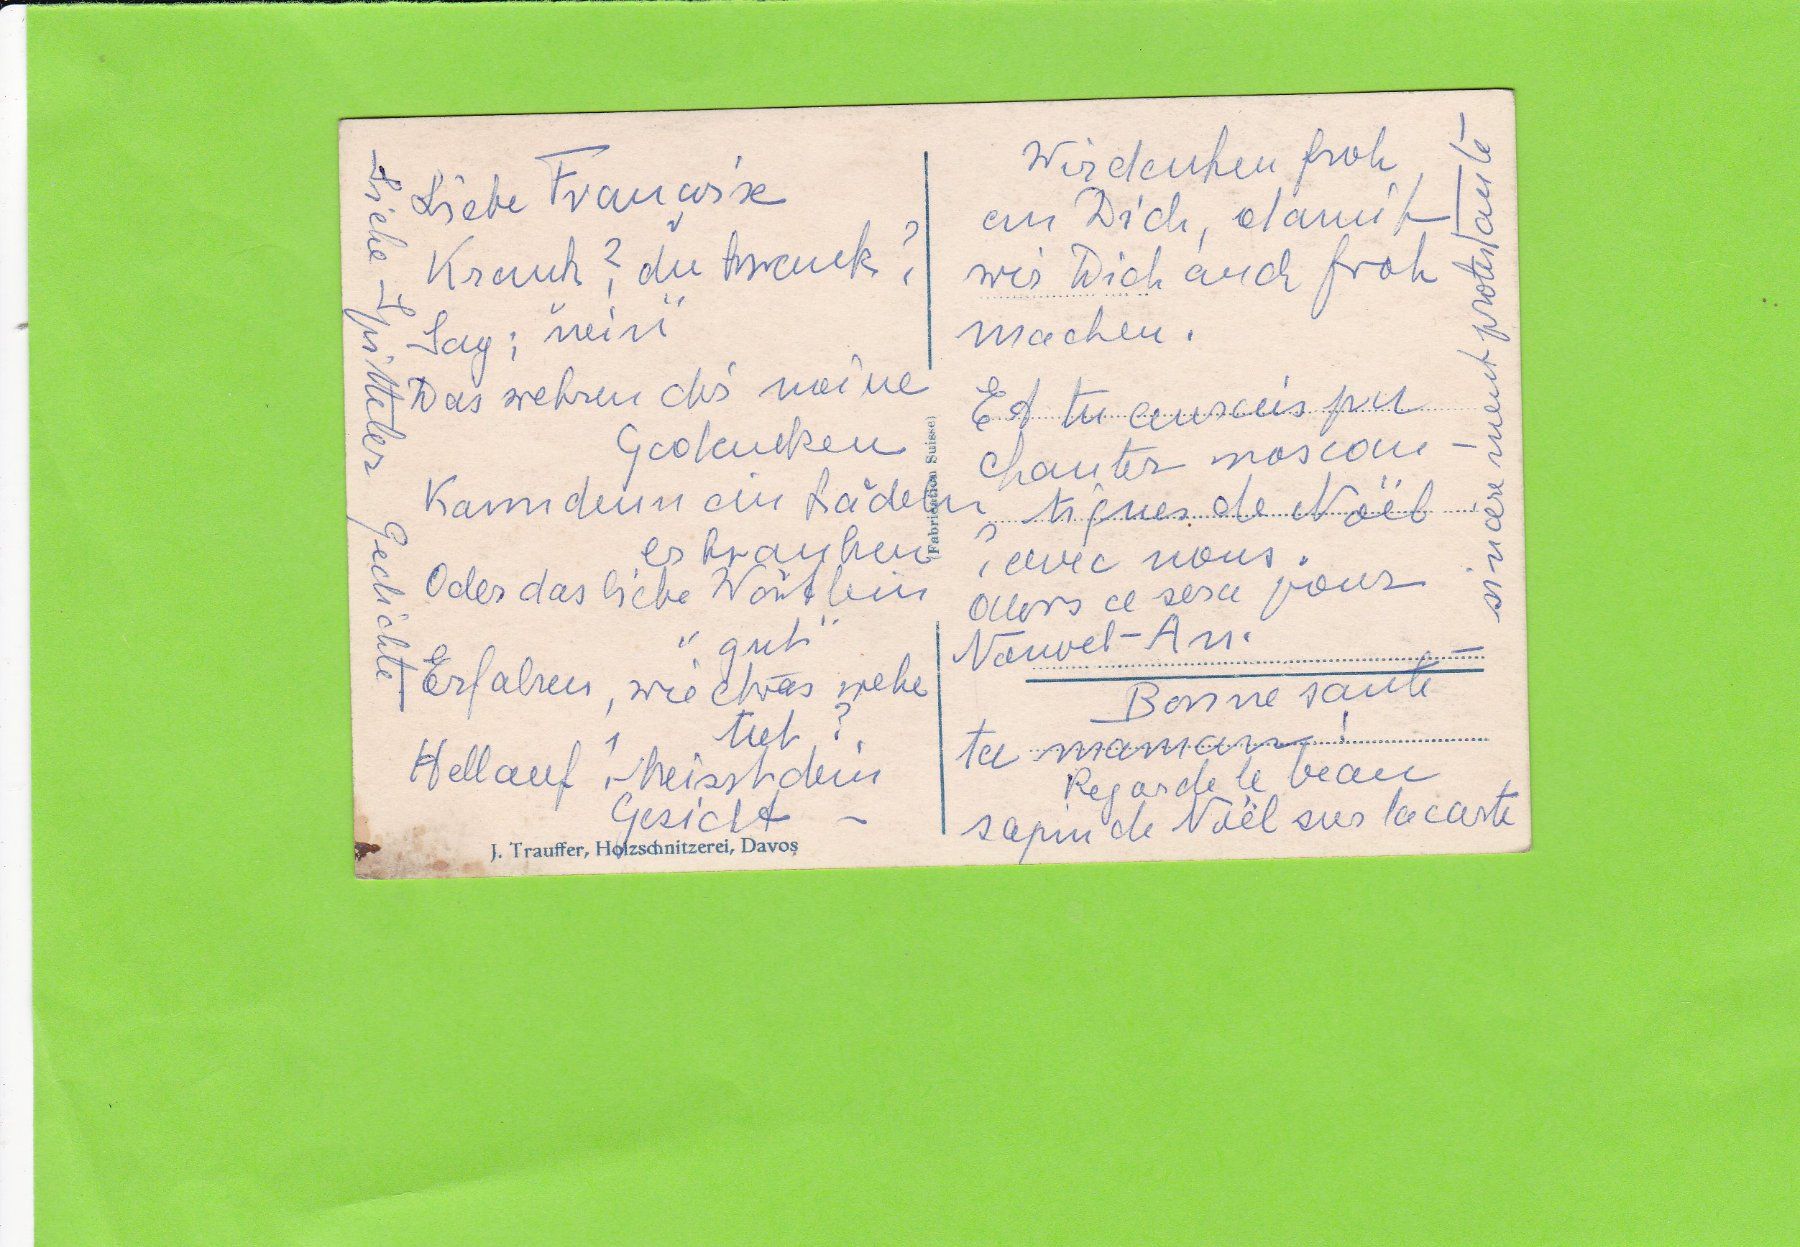 Liebe Francoise
Krank? du krank?
Sag; "nein"
Das wehren dir meine
Gedancken
Kann denn ein Lächeln
erkranken
Oder das liebe Wörtlein
"gut"
Erfahren, wie etwas wehe
tut?
Hellauf! heisst dein
Gesicht –
– Siehe – Spitteler Gedichte –
J. Trauffer, Holzschnitzerei, Davos
(Fabrication Suisse)
Wir denken froh
an Dich, damit
wir Dich auch froh
machen.
Et tu aurais pu
chanter nos can-
tiques de Noël
avec nous.
alors ce sera pour
Nouvel-An.
Bonne santé
ta maman!
Regarde le beau
sapin de Noël sur la carte
– sincèrement protestante –